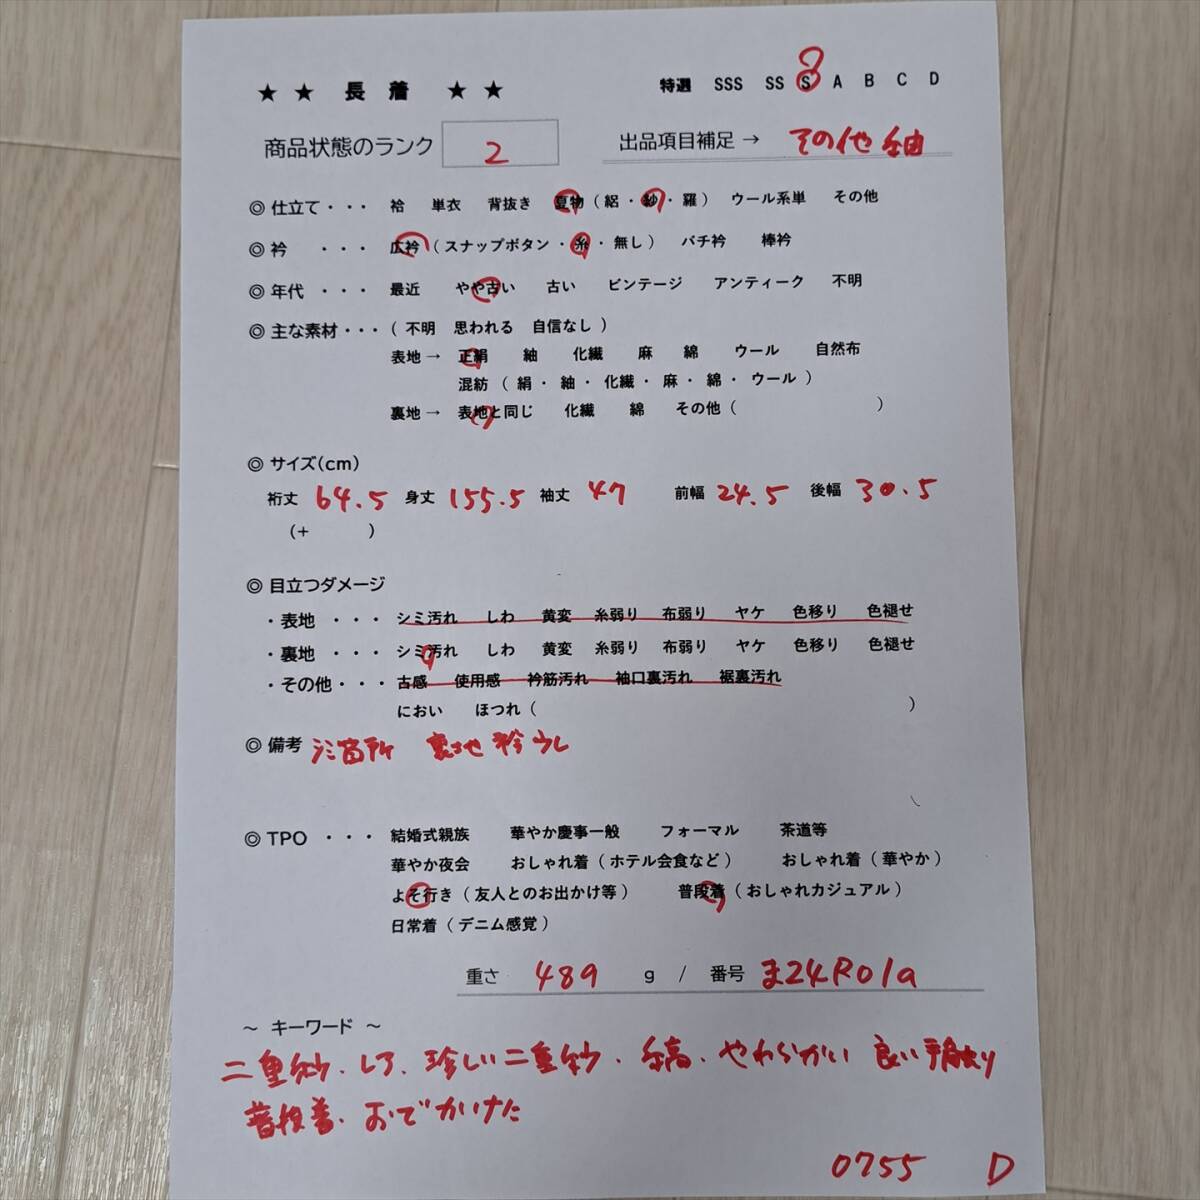 ★ ★ 長 着 ★ ★ 特選 SSS SS S A B C D
商品状態のランク 2 出品項目補足 → その他 紬
◎ 仕立て・・・ 袷 単衣 背抜き 夏物 ( 絽 ・ 紗 ・ 羅 ) ウール系単 その他
◎ 衿 ・・・ 広衿 ( スナップボタン ・ 糸 ・ 無し ) バチ衿 棒衿
◎ 年代 ・・・ 最近 やや古い 古い ビンテージ アンティーク 不明
◎ 主な素材・・・ ( 不明 思われる 自信なし )
表地 → 正絹 紬 化繊 麻 綿 ウール 自然布
混紡 ( 絹 ・ 紬 ・ 化繊 ・ 麻 ・ 綿 ・ ウール )
裏地 → 表地と同じ 化繊 綿 その他 ( )
◎ サイズ(cm)
裄丈 64.5 身丈 155.5 袖丈 47 前幅 24.5 後幅 30.5
(+ )
◎ 目立つダメージ
・表地 ・・・ シミ汚れ しわ 黄変 糸弱り 布弱り ヤケ 色移り 色褪せ
・裏地 ・・・ シミ汚れ しわ 黄変 糸弱り 布弱り ヤケ 色移り 色褪せ
・その他・・・ 古感 使用感 衿筋汚れ 袖口裏汚れ 裾裏汚れ
におい ほつれ ( )
◎ 備考 シミ箇所 裏地 衿
◎ TPO ・・・ 結婚式親族 華やか慶事一般 フォーマル 茶道等
華やか夜会 おしゃれ着 ( ホテル会食など ) おしゃれ着 ( 華やか )
よそ行き ( 友人とのお出かけ等 ) 普段着 ( おしゃれカジュアル )
日常着 ( デニム感覚 )
重さ 489 g / 番号 ま24R01a
～ キーワード ～
二重紗．レア．珍しい二重紗．縞．やわらかい 良い手触り
普段着．おでかけた
0755 D